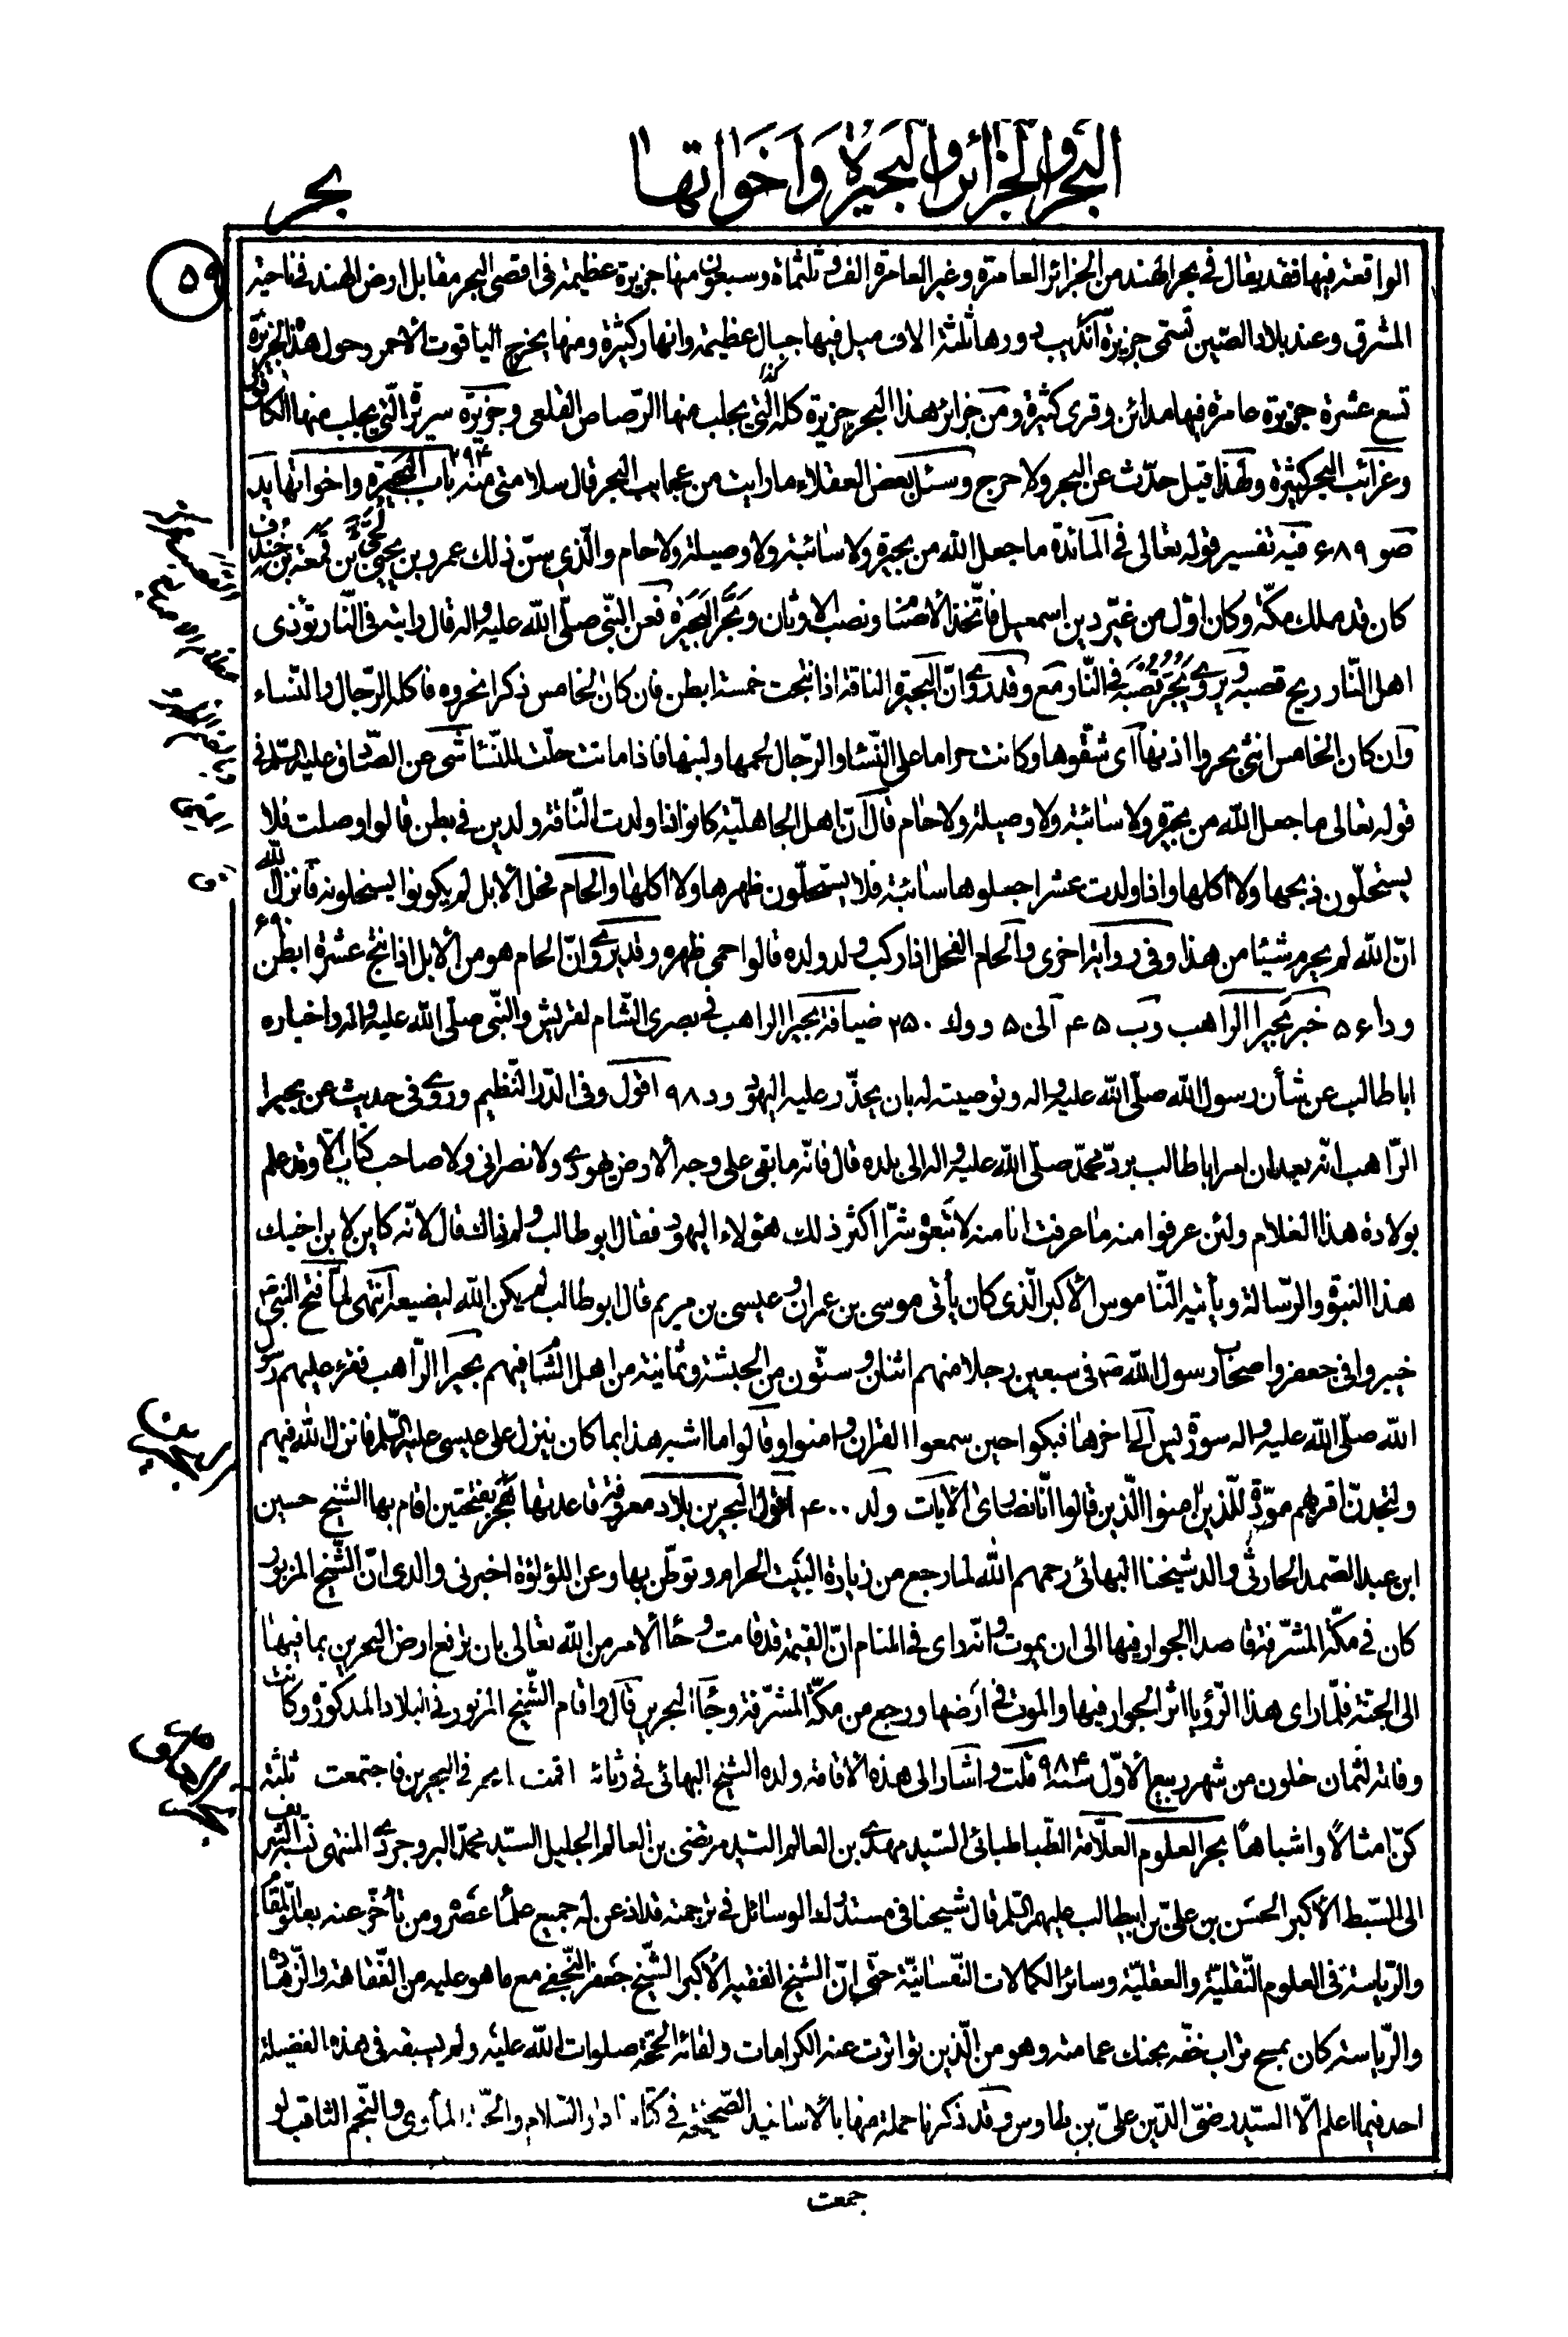 البحر والجزائر والبحيرة واخواتها
بحر
٥٩
الواقعة فيها فقد يقال في بحر الهند من الجزائر العامرة وغير العامرة الف وثلثماة وسبعون منها جزيرة عظيمة في اقصى البحر مقابل ارض الهند في ناحية
المشرق وعند بلاد الصّين تسمّى جزيرة دورها ثلثة الاف ميل فيها جبال عظيمة وانهار كثيرة ومنها يخرج الياقوت الأحمر وحول هذه الجزيرة
تسع عشرة جزيرة عامرة فيها مدائن وقرى كثيرة ومن جزائر هذا البحر جزيرة كله كذا الّتي يجلب منها الرّصاص القلعى وجزيرة سريرة الّتي يجلب منها الكافور
وغرائب البحر كثيرة ولهذا قيل حدّث عن البحر ولا حرج وسئل بعض العقلاء ما رايت من عجايب البحر قال سلامتى منه باب البحيرة واخواتها يد
صو ٦٨٩ فيه تفسير قوله تعالى في المائدة ما جعل الله من بحيرة ولا سائبة ولا وصيلة ولا حام والّذي سنّ ذلك عمرو بن يحيى لحىّ بن قمعة بن خندف
كان قد ملك مكّة وكان اوّل من غيّر دين اسمعيل فاتّخذ الأصنام ونصب الاوثان وبحّر البحيرة فعن النّبي صلّى الله عليه واله قال رايته في النّار تؤذى
اهل النّار ريح قصبه ويروى يجرّ قصبه في النّار مع وقد روى انّ البحيرة الناقة اذا نتجت خمسة ابطن فان كان الخامس ذكرا نحروه فاكله الرّجال والنّساء
وان كان الخامس انثى بحروا اذنها اى شقّوها وكانت حراما على النّساء والرّجال لحمها ولبنها فاذا ماتت حلّت للنّساء شى عن الصّادق عليه السّلم في
قوله تعالى ما جعل الله من بحيرة ولا سائبة ولا وصيلة ولا حام قال انّ اهل الجاهليّة كانوا اذا ولدت النّاقة ولدين في بطن قالوا وصلت فلا
يستحلّون ذبحها ولا اكلها واذا ولدت عشرا جعلوها سائبة فلا يستحلّون ظهرها ولا اكلها والحام فحل الأبل لم يكونوا يستحلونه فانزل الله
انّ الله لم يحرم شيئا من هذا وفي رواية اخرى والحام الفحل اذا ركب ولد ولده قالوا حمى ظهره وقد يروى انّ الحام هو من الأبل اذا انتج عشرة ابطن ٦٩٠
و دا ٥٦ خبر بحيرا الراهب وب ٤٥ الى ٥ و ولد ٢٥٠ ضيافة بحيرا الراهب في بصرى الشّام لقريش والنّبى صلّى الله عليه واله واخباره
ابا طالب عن شأن رسول الله صلّى الله عليه واله وتوصيته له بان يحذّر عليه اليهود و د ٩٨ اقول وفي الدّر النّظيم وروى في حديث عن بحيرا
الرّاهب انّه بعد ان امر ابا طالب بردّ محمّد صلّى الله عليه واله الى بلده قال فانّه ما بقى على وجه الأرض يهودى ولا نصرانى ولا صاحب كتاب الّا وقد علم
بولادة هذا الغلام ولئن عرفوا منه ما عرفت انا منه لابتغوه شرّا اكثر ذلك هؤلاء اليهود فقال ابو طالب ولم ذاك قال لانّه كاين لابن اخيك
هذا النبوّة والرّسالة ويأتيه النّاموس الأكبر الّذى كان يأتى موسى بن عمران وعيسى بن مريم قال ابو طالب لم يكن الله ليضيعه انتهى لمّا فتح النبى ص
خيبر وافى جعفر واصحاب رسول الله ص في سبعين رجلا منهم اثنان وستّون من الحبشة وثمانية من اهل الشام فيهم بحيرا الرّاهب فقرء عليهم رسول
الله صلّى الله عليه واله سورة يس الى اخرها فبكوا حين سمعوا القران وامنوا وقالوا ما اشبه هذا بما كان ينزل على عيسى عليه السّلم فانزل الله فيهم
ولتجدنّ اقربهم مودّة للّذين امنوا الّذين قالوا انّا نصارى الأيات ولد ٤٠٠ اقول البحرين بلاد معروفة قاعدتها هجر بفتحتين اقام بها الشيخ حسين
ابن عبد الصّمد الحارثى والد شيخنا البهائى رحمهم الله لما رجع من زيارة البيت الحرام وتوطّن بها وعن اللؤلؤة اخبرنى والدى انّ الشّيخ المزبور
كان في مكّة المشرّفة قاصدا الجوار فيها الى ان يموت وانّه راى في المنام انّ القيمة قد قامت وجاء الأمر من الله تعالى بان يرفع ارض البحرين بما فيها
الى الجنّة فلمّا راى هذا الرّؤيا اثر الجوار فيها والموت في ارضها ورجع من مكّة المشرّفة وجاء البحرين قال واقام الشّيخ المزبور في البلاد المذكورة وكانت
وفاته لثمان خلون من شهر ربيع الأوّل سنة ٩٨٤ قلت واشار الى هذه الأقامة ولده الشيخ البهائى في رثائه اقمت ايحر في البحرين فاجتمعت ثلثة
كنّ امثالًا واشباهًا بحر العلوم العلّامة الطّباطبائى السّيد مهدى بن العالم السّيد مرتضى بن العالم الجليل السّيد محمّد البروجردى المنتهى نسبه الشريف
الى السّبط الأكبر الحسن بن علىّ بن ابيطالب عليهم السّلم قال شيخنا في مستدرك الوسائل في ترجمته قد اذعن له جميع علماء عصره ومن تأخّر عنه بعلوّ المقام
والرّياسة في العلوم النّقليّة والعقليّة وسائر الكمالات النّفسانيّة حتّى انّ الشيخ الفقيه الأكبر الشّيخ جعفر النّجفى مع ما هو عليه من الفقاهة والزّهادة
والرّياسة كان يمسح تراب خفّه بحنك عمامته وهو من الّذين تواترت عنه الكرامات ولقائه الحجّة صلوات الله عليه ولم يسبقه في هذه الفضيلة
احد فيما اعلم الّا السّيد رضىّ الدّين علىّ بن طاوس وقد ذكرنا جملة منها بالأسانيد الصّحيحة في كتابنا دار السّلام والجنّة المأوى والنّجم الثاقب لو
جمعت